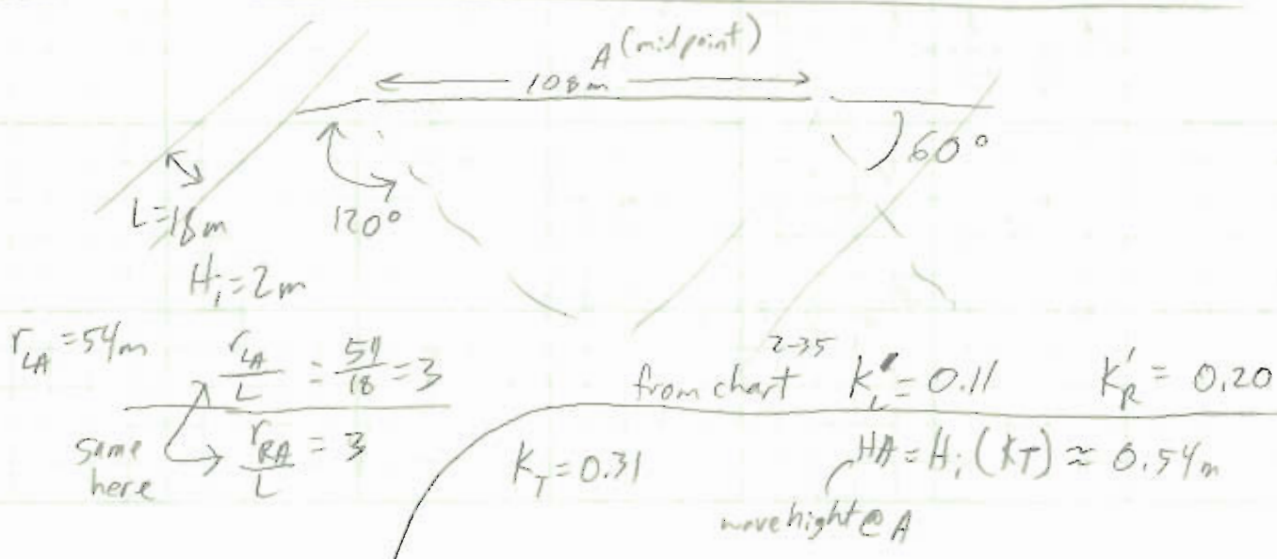 A (midpoint)
108m
60°
L=18m
120°
Hᵢ=2m
r_LA = 54m
r_LA/L = 54/18 = 3
same here
r_RA/L = 3
from chart 2-35 K'_L = 0.11 K'_R = 0.20
K_T = 0.31
HA = Hᵢ (KT) ≈ 0.54m
wave hight @ A